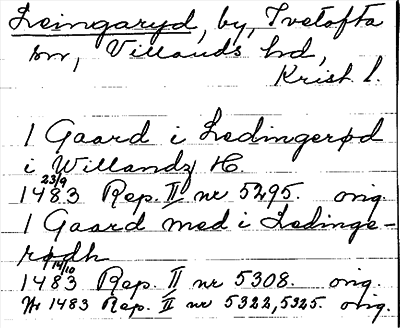 Leingaryd, by, Ivetofta
sn, Villands hd,
Krist. l.
1 Gaard i Ledingerød
i Willandz H.
1483 23/9 Rep. II nr 5295. orig.
1 Gaard med i Ledinge-
rødh
1483 14/10 Rep. II nr 5308. orig.
Nr 1483 Rep. II nr 5322, 5325 orig.